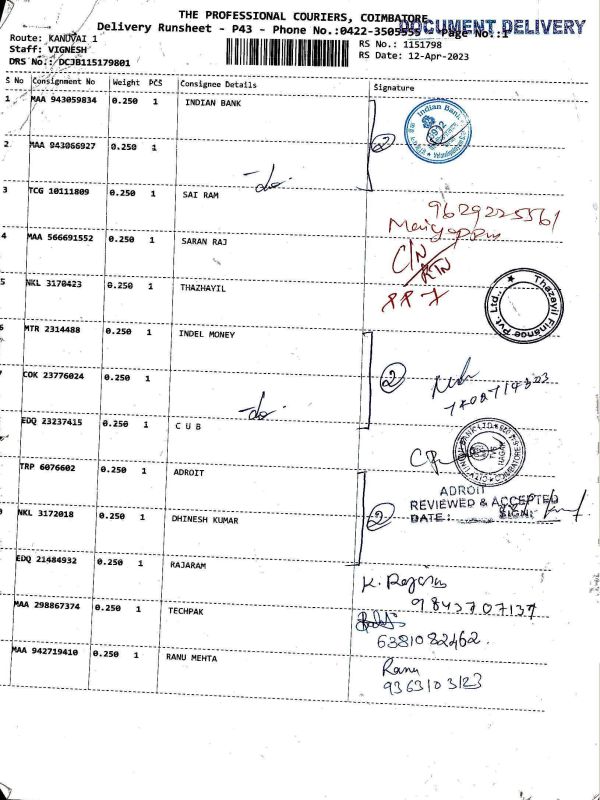 THE PROFESSIONAL COURIERS, COIMBATORE
DOCUMENT DELIVERY
Delivery Runsheet - P43 - Phone No.:0422-3505555 Page No.:1
Route: KANUVAI 1
RS No.: 1151798
Staff: VIGNESH
RS Date: 12-Apr-2023
DRS No.: DCJB115179801
S No Consignment No Weight PCS Consignee Details Signature
1 MAA 943059834 0.250 1 INDIAN BANK
Indian Bank
2 MAA 943066927 0.250 1 -do-
2
3 TCG 10111809 0.250 1 SAI RAM
9629225561
4 MAA 566691552 0.250 1 SARAN RAJ
C/N
RTN
5 NKL 3170423 0.250 1 THAZHAYIL
PP 7
Thazhayil Finance Pvt. Ltd.,
6 MTR 2314488 0.250 1 INDEL MONEY
2
COK 23776024 0.250 1 -do-
EDQ 23237415 0.250 1 C U B
TRP 6076602 0.250 1 ADROIT
ADROIT
REVIEWED & ACCEPTED
DATE: SIGN:
NKL 3172018 0.250 1 DHINESH KUMAR
2
EDQ 21484932 0.250 1 RAJARAM
K. Rajaram
9843707137
MAA 298867374 0.250 1 TECHPAK
6381082462.
MAA 942719410 0.250 1 RANU MEHTA
Ranu
9363103123